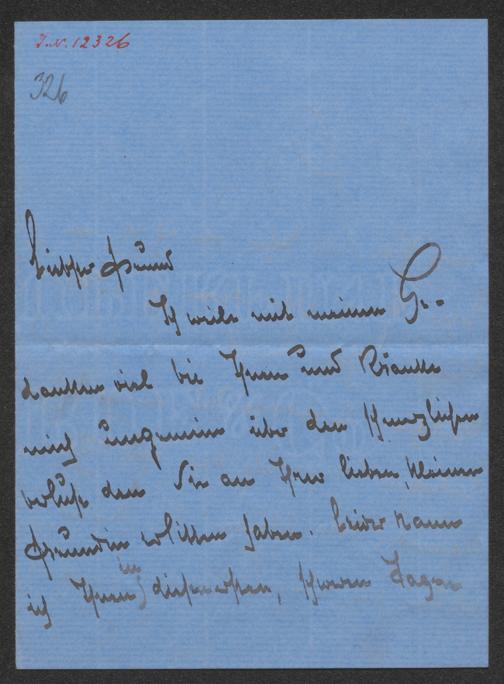 I.N. 12326
326
Liebster Freund
Ich weile mit meinen Ge-
danken viel bei Ihnen und kränke
mich ungemein über den schmerzlichen
Verlust den Sie an Ihrer lieben, kleinen
Freundin erlitten haben. Leider kann
ich Ihnen in diesen ersten, schweren Tagen